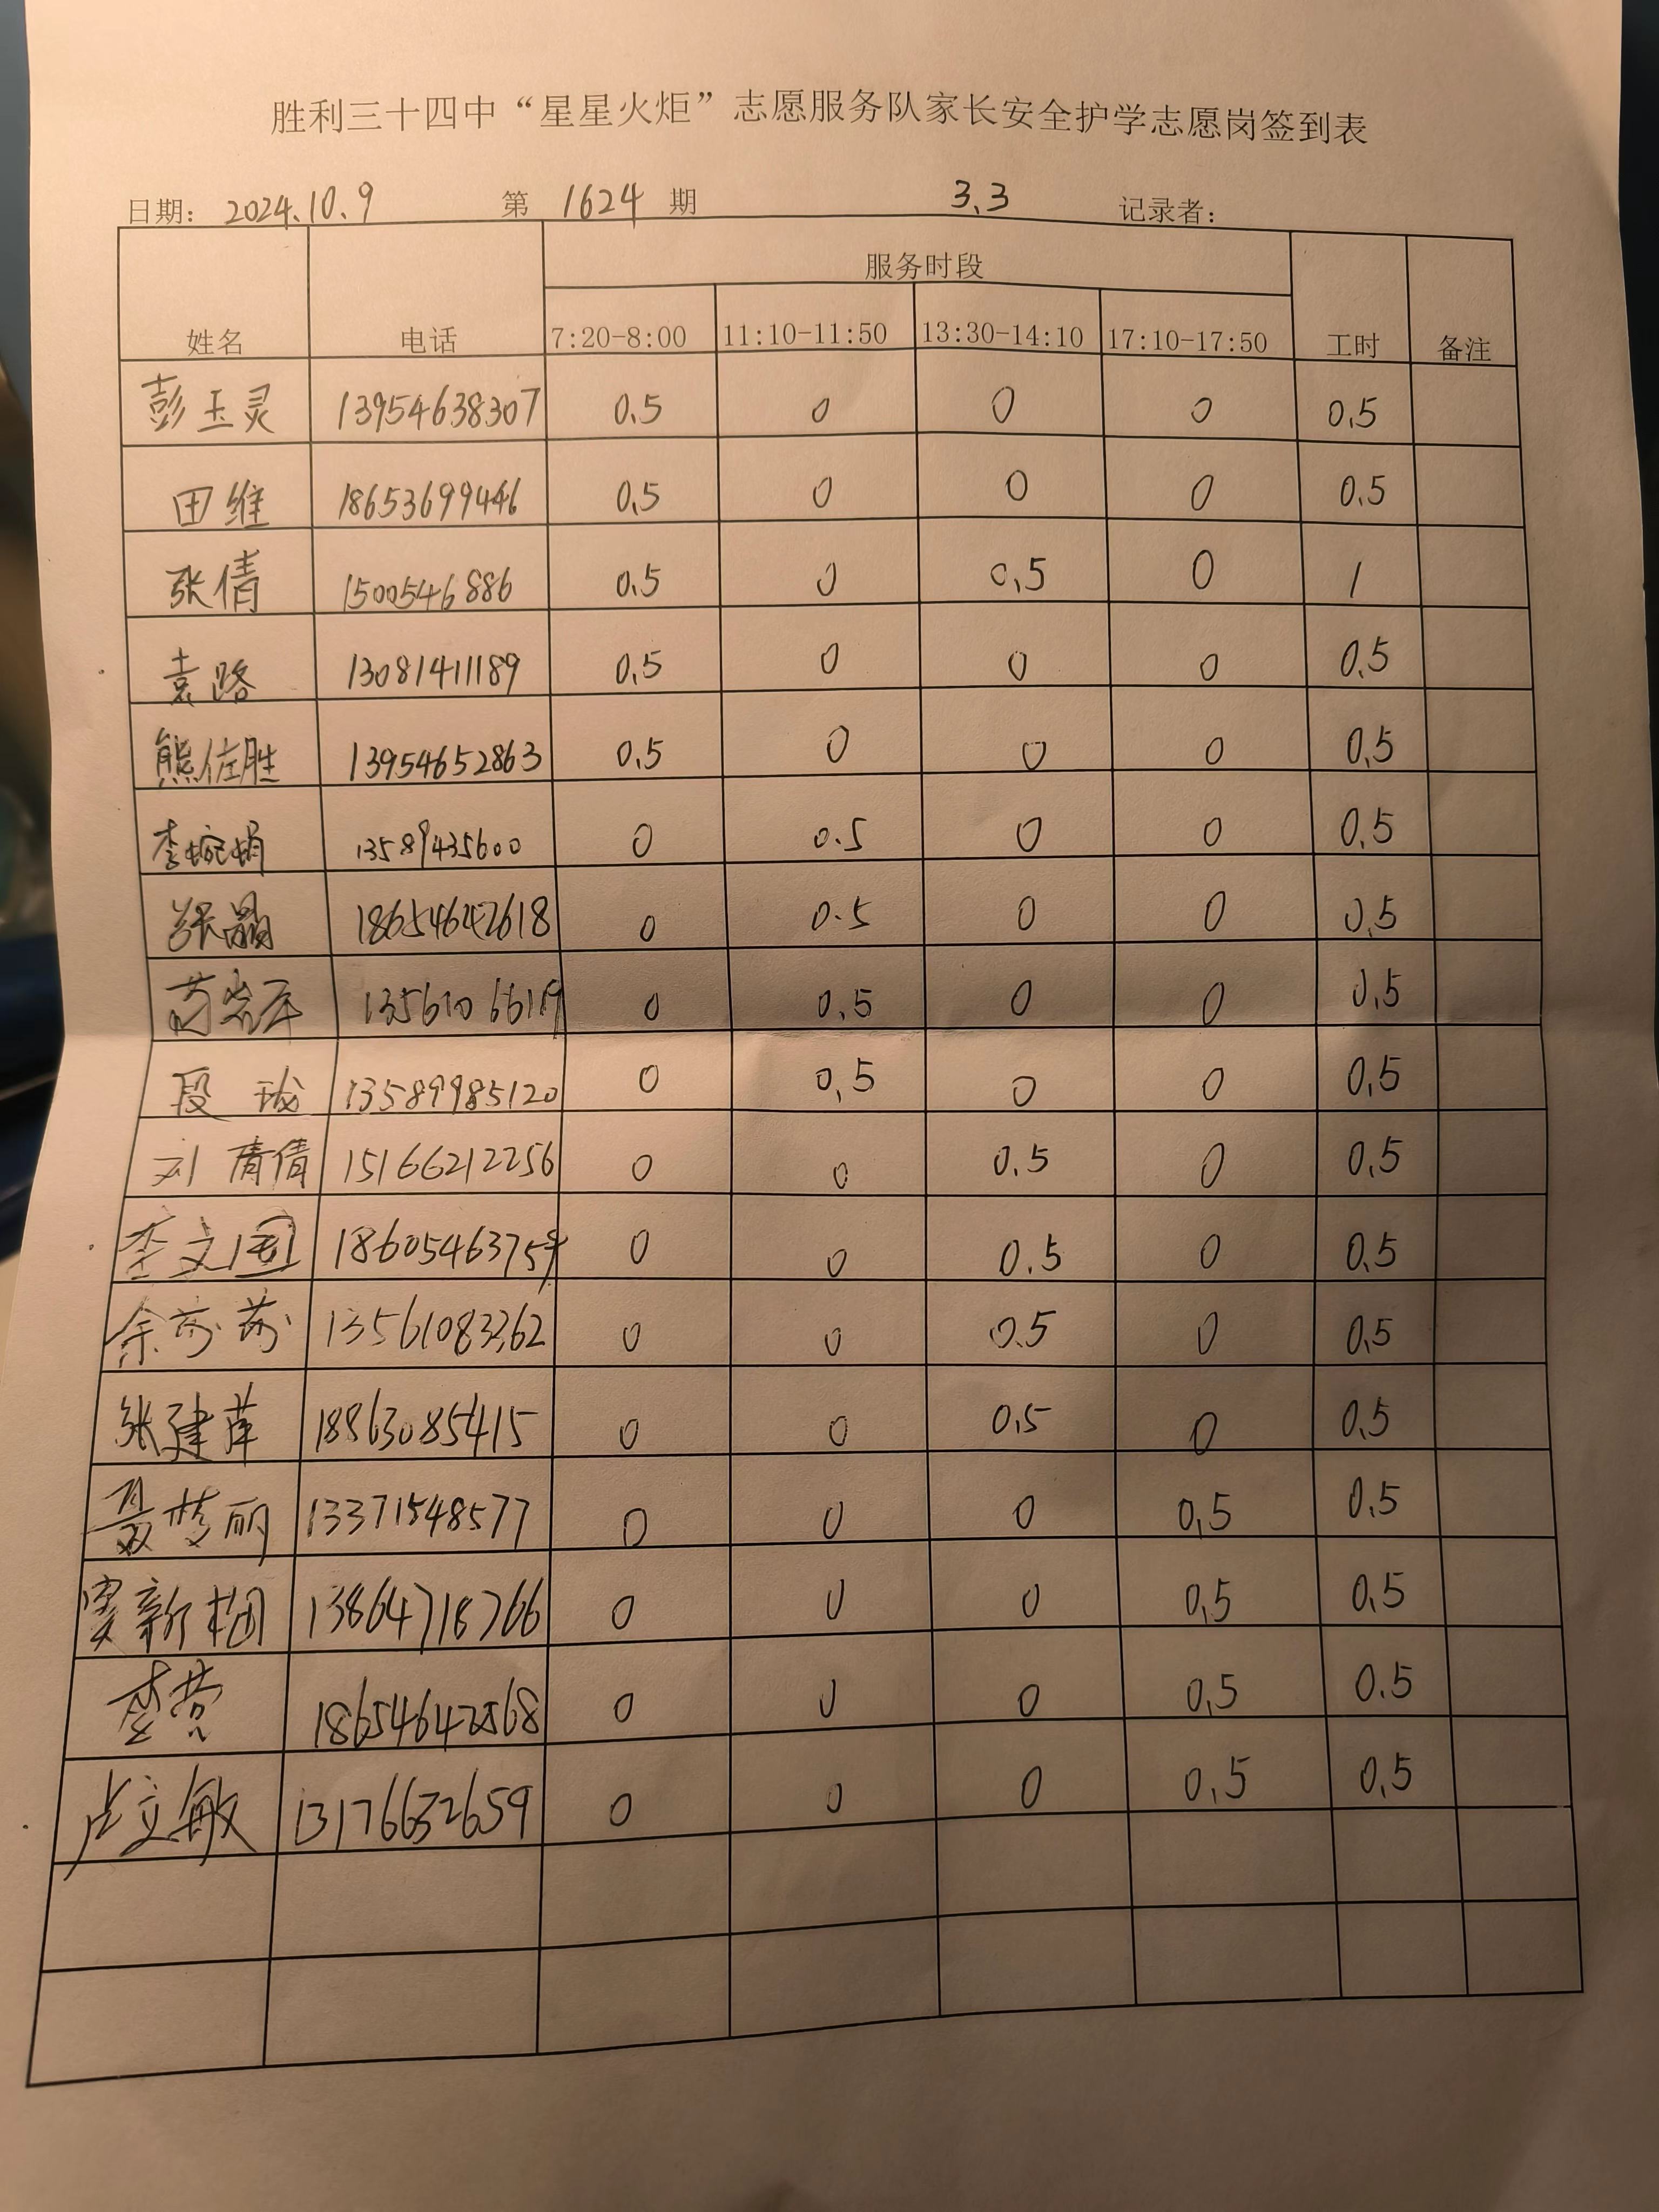 胜利三十四中“星星火炬”志愿服务队家长安全护学志愿岗签到表
日期: 2024.10.9 第 1624 期 3.3 记录者:
服务时段
姓名 电话 7:20-8:00 11:10-11:50 13:30-14:10 17:10-17:50 工时 备注
彭玉灵 13954638307 0.5 0 0 0 0.5
田维 18653699446 0.5 0 0 0 0.5
张倩 1500546886 0.5 0 0.5 0 1
袁路 13081411189 0.5 0 0 0 0.5
熊佐胜 13954652863 0.5 0 0 0 0.5
李婉娟 13589435600 0 0.5 0 0 0.5
张晶 18654642618 0 0.5 0 0 0.5
0 0.5 0 0 0.5
段珑 13589985120 0 0.5 0 0 0.5
刘倩倩 15166212256 0 0 0.5 0 0.5
李文国 0 0 0.5 0 0.5
余莎莎 13561083362 0 0 0.5 0 0.5
张建萍 18863085415 0 0 0.5 0 0.5
聂梦丽 13371548577 0 0 0 0.5 0.5
窦新梅 13864718766 0 0 0 0.5 0.5
李营 18654642568 0 0 0 0.5 0.5
卢立敏 13176632659 0 0 0 0.5 0.5